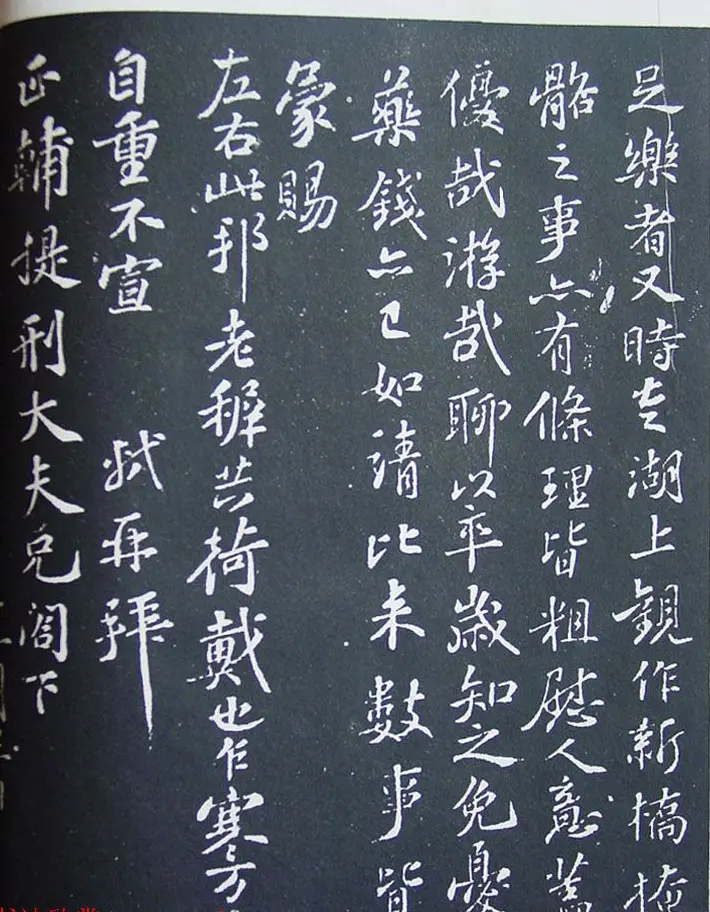 足樂者又時至湖上觀作新橋掩
骼之事亦有條理皆粗慰人意蓋
優哉游哉聊以卒歲知之免憂
藥錢亦已如請比來數事皆
蒙賜
左右此邦老稚共荷戴也乍寒萬
自重不宣 軾再拜
正輔提刑大夫兄閣下